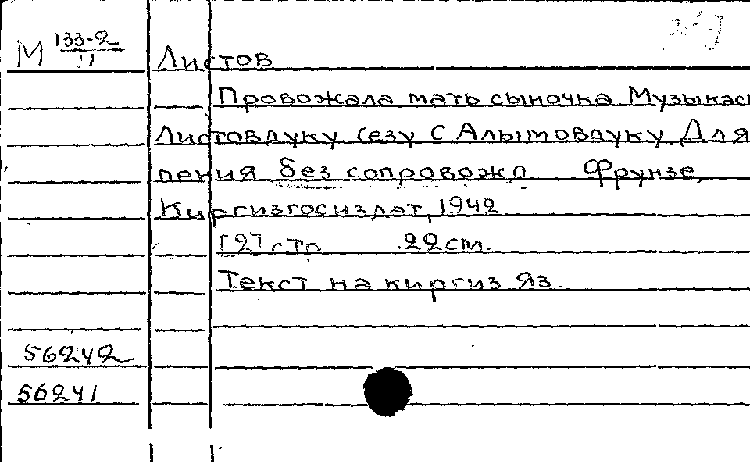 М 133-2
11
Листов
Провожала мать сыночка Музыкасы
Листовдуку Сезу С Алымовдуку Для
пения без сопровожд Фрунзе,
Киргизгосиздат, 1942
[2] стр 22 cm.
Текст на киргиз яз
56242
56241